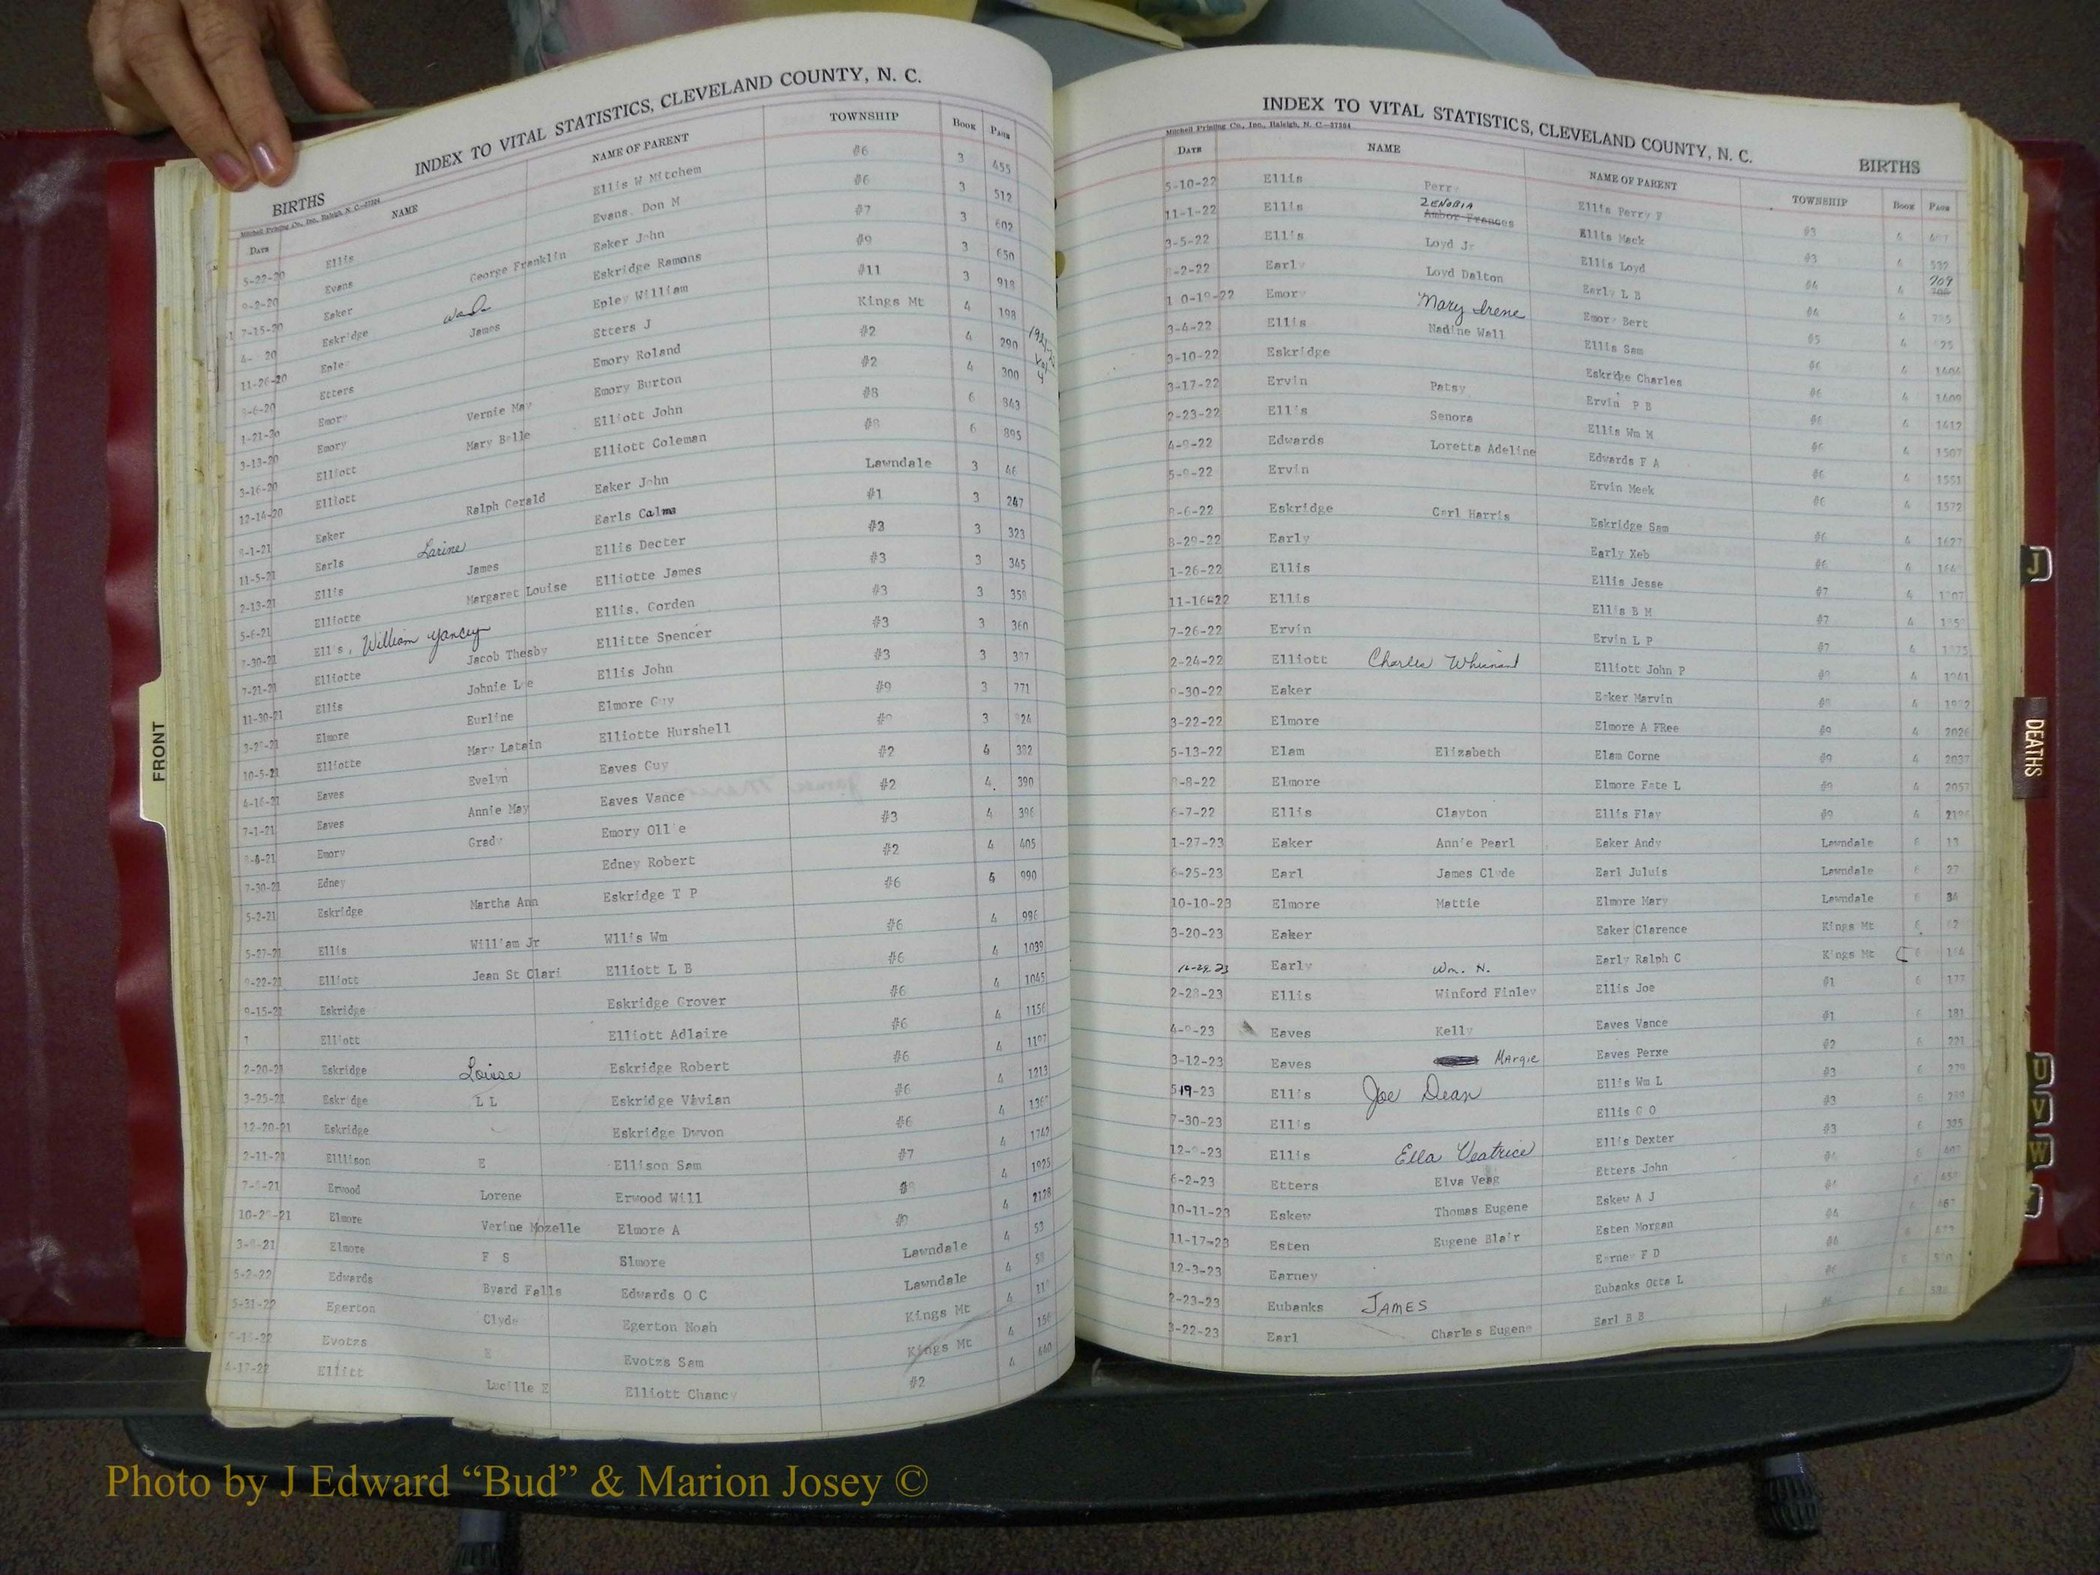 INDEX TO VITAL STATISTICS, CLEVELAND COUNTY, N. C.
BIRTHS
Mitchell Printing Co., Inc., Raleigh, N. C.—37384
DATE NAME NAME OF PARENT TOWNSHIP BOOK PAGE
5-22-20 Ellis Ellis W Mitchem #6 3 455
9-2-20 Evans George Franklin Evans, Don M #6 3 512
7-15-20 Eaker Eaker John #7 3 602
4- 20 Eskridge James Eskridge Ramons #9 3 650
11-26-20 Epley Epley William #11 3 918
8-6-20 Etters Etters J Kings Mt 4 198
1-21-20 Emory Vernie May Emory Roland #2 4 290
3-13-20 Emory Mary Belle Emory Burton #2 4 300
3-16-20 Elliott Elliott John #8 6 843
12-14-20 Elliott Ralph Gerald Elliott Coleman #8 6 895
8-1-21 Eaker Eaker John Lawndale 3 46
11-5-21 Earls Larine Earls Calma #1 3 247
2-13-21 Ellis James Ellis Decter #3 3 323
5-6-21 Elliotte Margaret Louise Elliotte James #3 3 345
7-30-21 Ellis, William Yancey Ellis, Gorden #3 3 358
7-21-21 Elliotte Jacob Thesby Ellitte Spencer #3 3 360
11-30-21 Ellis Johnie Lee Ellis John #3 3 387
Elmore Eurline Elmore Guy #9 3 771
10-5-21 Elliotte Mary Latain Elliotte Hurshell 3
4-16-21 Eaves Evelyn Eaves Guy #2 4 382
7-1-21 Eaves Annie May Eaves Vance #2 4 390
Emory Grady Emory Ollie #3 4 396
7-30-21 Edney Edney Robert #2 4 405
5-2-21 Eskridge Martha Ann Eskridge T P #6 4 990
5-27-21 Ellis William Jr Wllis Wm #6 4 996
9-22-21 Elliott Jean St Clari Elliott L B #6 4 1039
9-15-21 Eskridge Eskridge Grover #6 4 1045
Elliott Elliott Adlaire #6 4 1156
2-20-21 Eskridge Louise Eskridge Robert #6 4 1197
3-25-21 Eskridge L L Eskridge Vivian #6 4 1213
12-20-21 Eskridge Eskridge Dwvon #6 4
2-11-21 Elllison E Ellison Sam #7 4 1742
Erwood Lorene Erwood Will 4 1925
Elmore Verine Mozelle Elmore A #9 4 2128
Elmore F S Elmore Lawndale 4 53
5-2-22 Edwards Byard Falls Edwards O C Lawndale 4
5-31-22 Egerton Clyde Egerton Noah Kings Mt 4
Evotzs E Evotzs Sam Kings Mt 4 156
4-17-22 Ellitt Lucille E Elliott Chancy #2 4 440
INDEX TO VITAL STATISTICS, CLEVELAND COUNTY, N. C.
BIRTHS
Mitchell Printing Co., Inc., Raleigh, N. C.—37384
DATE NAME NAME OF PARENT TOWNSHIP BOOK PAGE
5-10-22 Ellis Perry Ellis Perry F #3 4
11-1-22 Ellis ZENOBIA Ambor Frances Ellis Mack #3 4 532
3-5-22 Ellis Loyd Jr Ellis Loyd #4 4 709
Early Loyd Dalton Early L B #4 4
10-19-22 Emory Mary Irene Emory Bert #5 4
3-4-22 Ellis Nadine Wall Ellis Sam #6 4
3-10-22 Eskridge Eskrdge Charles #6 4 1409
3-17-22 Ervin Patsy Ervin P B #6 4 1412
2-23-22 Ellis Senora Ellis Wm M #6 4 1507
4-9-22 Edwards Loretta Adeline Edwards F A #6 4 1551
5-9-22 Ervin Ervin Meek #6 4 1572
8-6-22 Eskridge Carl Harris Eskridge Sam #6 4 1627
8-29-22 Early Early Xeb #6 4
1-26-22 Ellis Ellis Jesse #7 4
11-16-22 Ellis Ellis B M #7 4
7-26-22 Ervin Ervin L P #7 4
2-24-22 Elliott Charles Whisnant Elliott John P 4 1941
Eaker Eaker Marvin 4
3-22-22 Elmore Elmore A FRee #9 4 2026
5-13-22 Elam Elizabeth Elam Corne #9 4 2037
Elmore Elmore Fate L #9 4 2057
6-7-22 Ellis Clayton Ellis Flay #9 4
1-27-23 Eaker Annie Pearl Eaker Andy Lawndale 6 13
6-25-23 Earl James Clyde Earl Juluis Lawndale 6 27
10-10-23 Elmore Mattie Elmore Mary Lawndale 6 34
3-20-23 Eaker Eaker Clarence Kings Mt 6 62
12-29-23 Early Wm. H. Early Ralph C Kings Mt 6
2-28-23 Ellis Winford Finley Ellis Joe #1 6 177
Eaves Kelly Eaves Vance #1 6 181
3-12-23 Eaves Margie Eaves Perxe #2 6 221
5-19-23 Ellis Joe Dean Ellis Wm L #3 6 279
7-30-23 Ellis Ellis G O #3 6
Ellis Ella Veatrice Ellis Dexter #3 6 325
6-2-23 Etters Elva Veag Etters John #4 6
10-11-23 Eskew Thomas Eugene Eskew A J #4 6
11-17-23 Esten Eugene Blair Esten Morgan #4 6
12-3-23 Earney Earney F D #6 6
2-23-23 Eubanks JAMES Eubanks Otta L 6
3-22-23 Earl Charles Eugene Earl B B
FRONT
J
DEATHS
U
V
W
Photo by J Edward “Bud” & Marion Josey ©